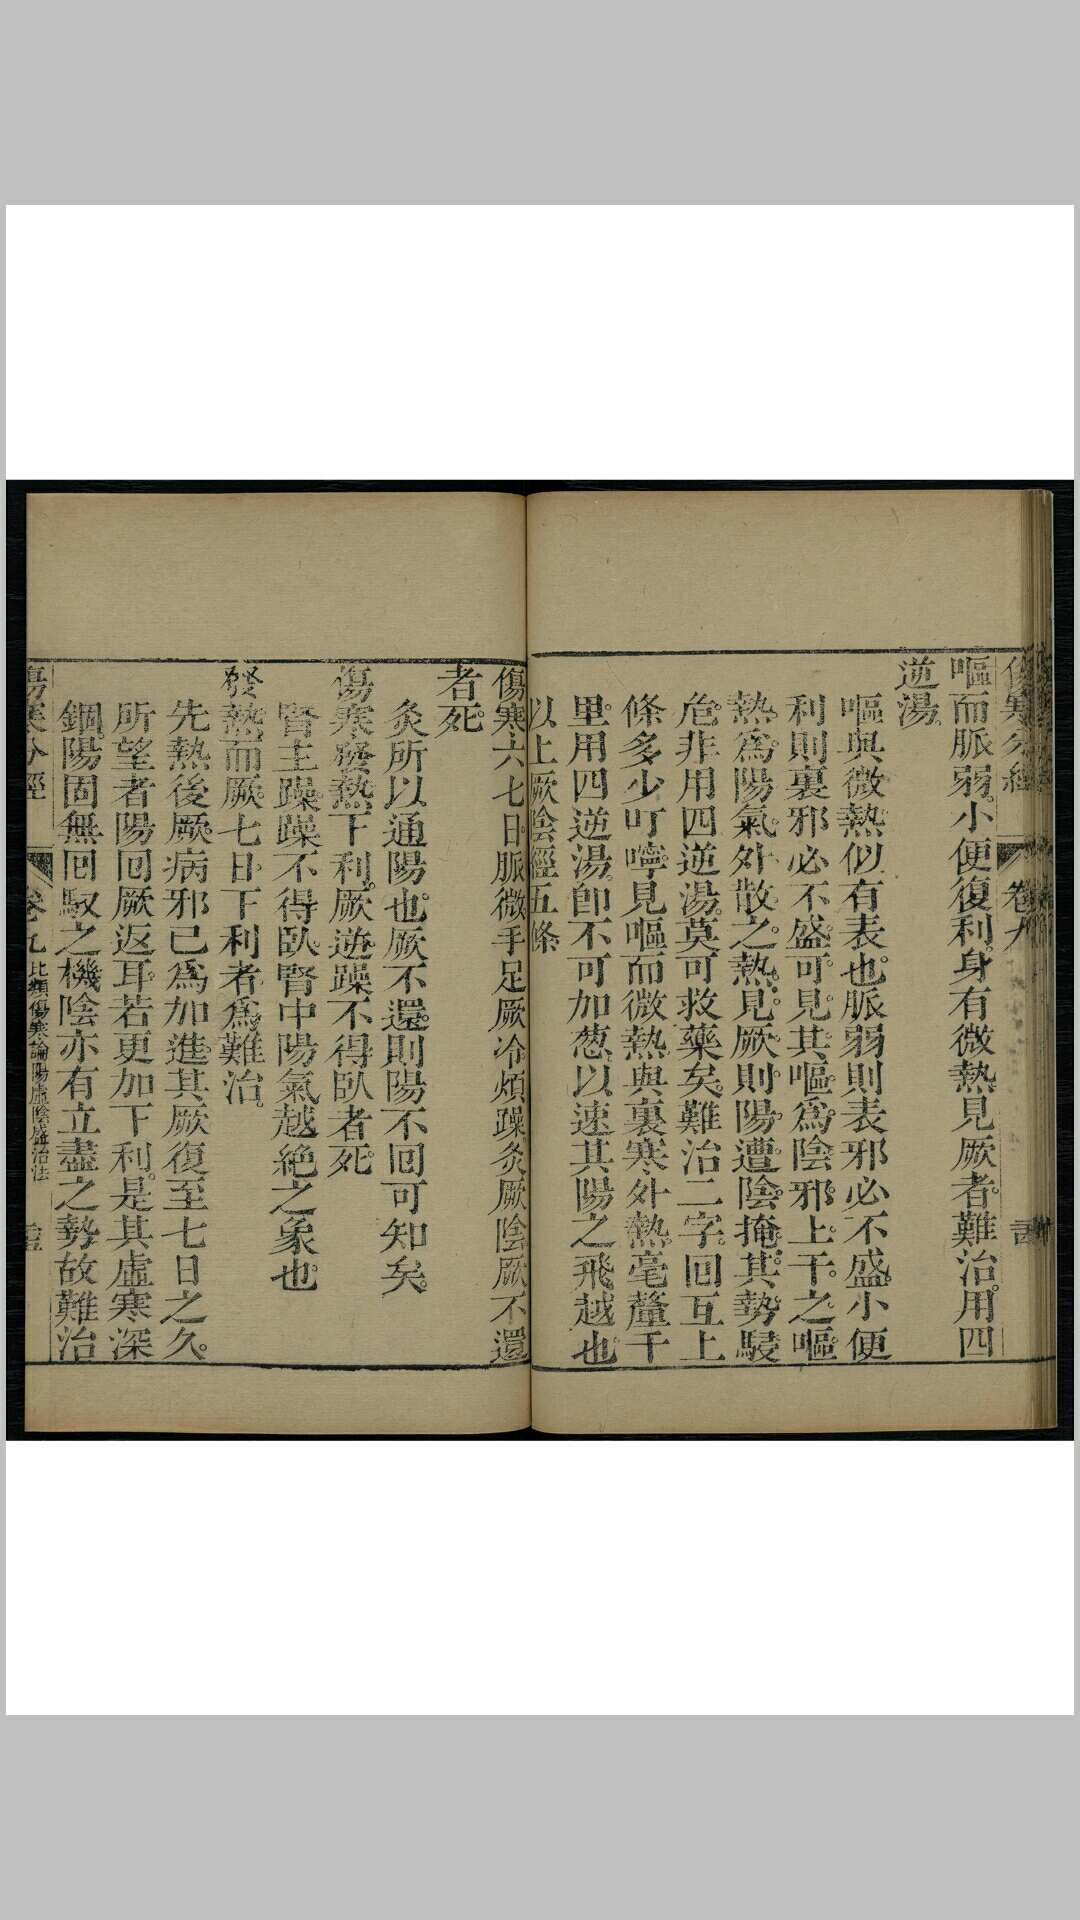 傷寒分經
卷九
嘔而脈弱。小便復利。身有微熱見厥者。難治。用四
逆湯。
嘔與微熱似有表也。脈弱則表邪必不盛。小便
利則裏邪必不盛。可見其嘔爲陰邪上干之嘔。
熱爲陽氣外散之熱。見厥則陽遭陰掩。其勢駸
危。非用四逆湯。莫可救藥矣。難治二字。回互上
條多少叮嚀。見嘔而微熱。與裏寒外熱。毫釐千
里。用四逆湯。卽不可加葱。以速其陽之飛越也。
以上厥陰經五條
傷寒六七日。脈微。手足厥冷。煩躁。灸厥陰。厥不還
者死。
灸所以通陽也。厥不還。則陽不回可知矣。
傷寒發熱。下利。厥逆。躁不得臥者死。
腎主躁。躁不得臥。腎中陽氣越絕之象也。
發熱而厥。七日下利者。爲難治。
先熱後厥。病邪已爲加進。其厥復至七日之久。
所望者。陽回厥返耳。若更加下利。是其虛寒深
錮。陽固無回馭之機。陰亦有立盡之勢。故難治
傷寒分經
卷九
比類傷寒論陽虛陰盛治法